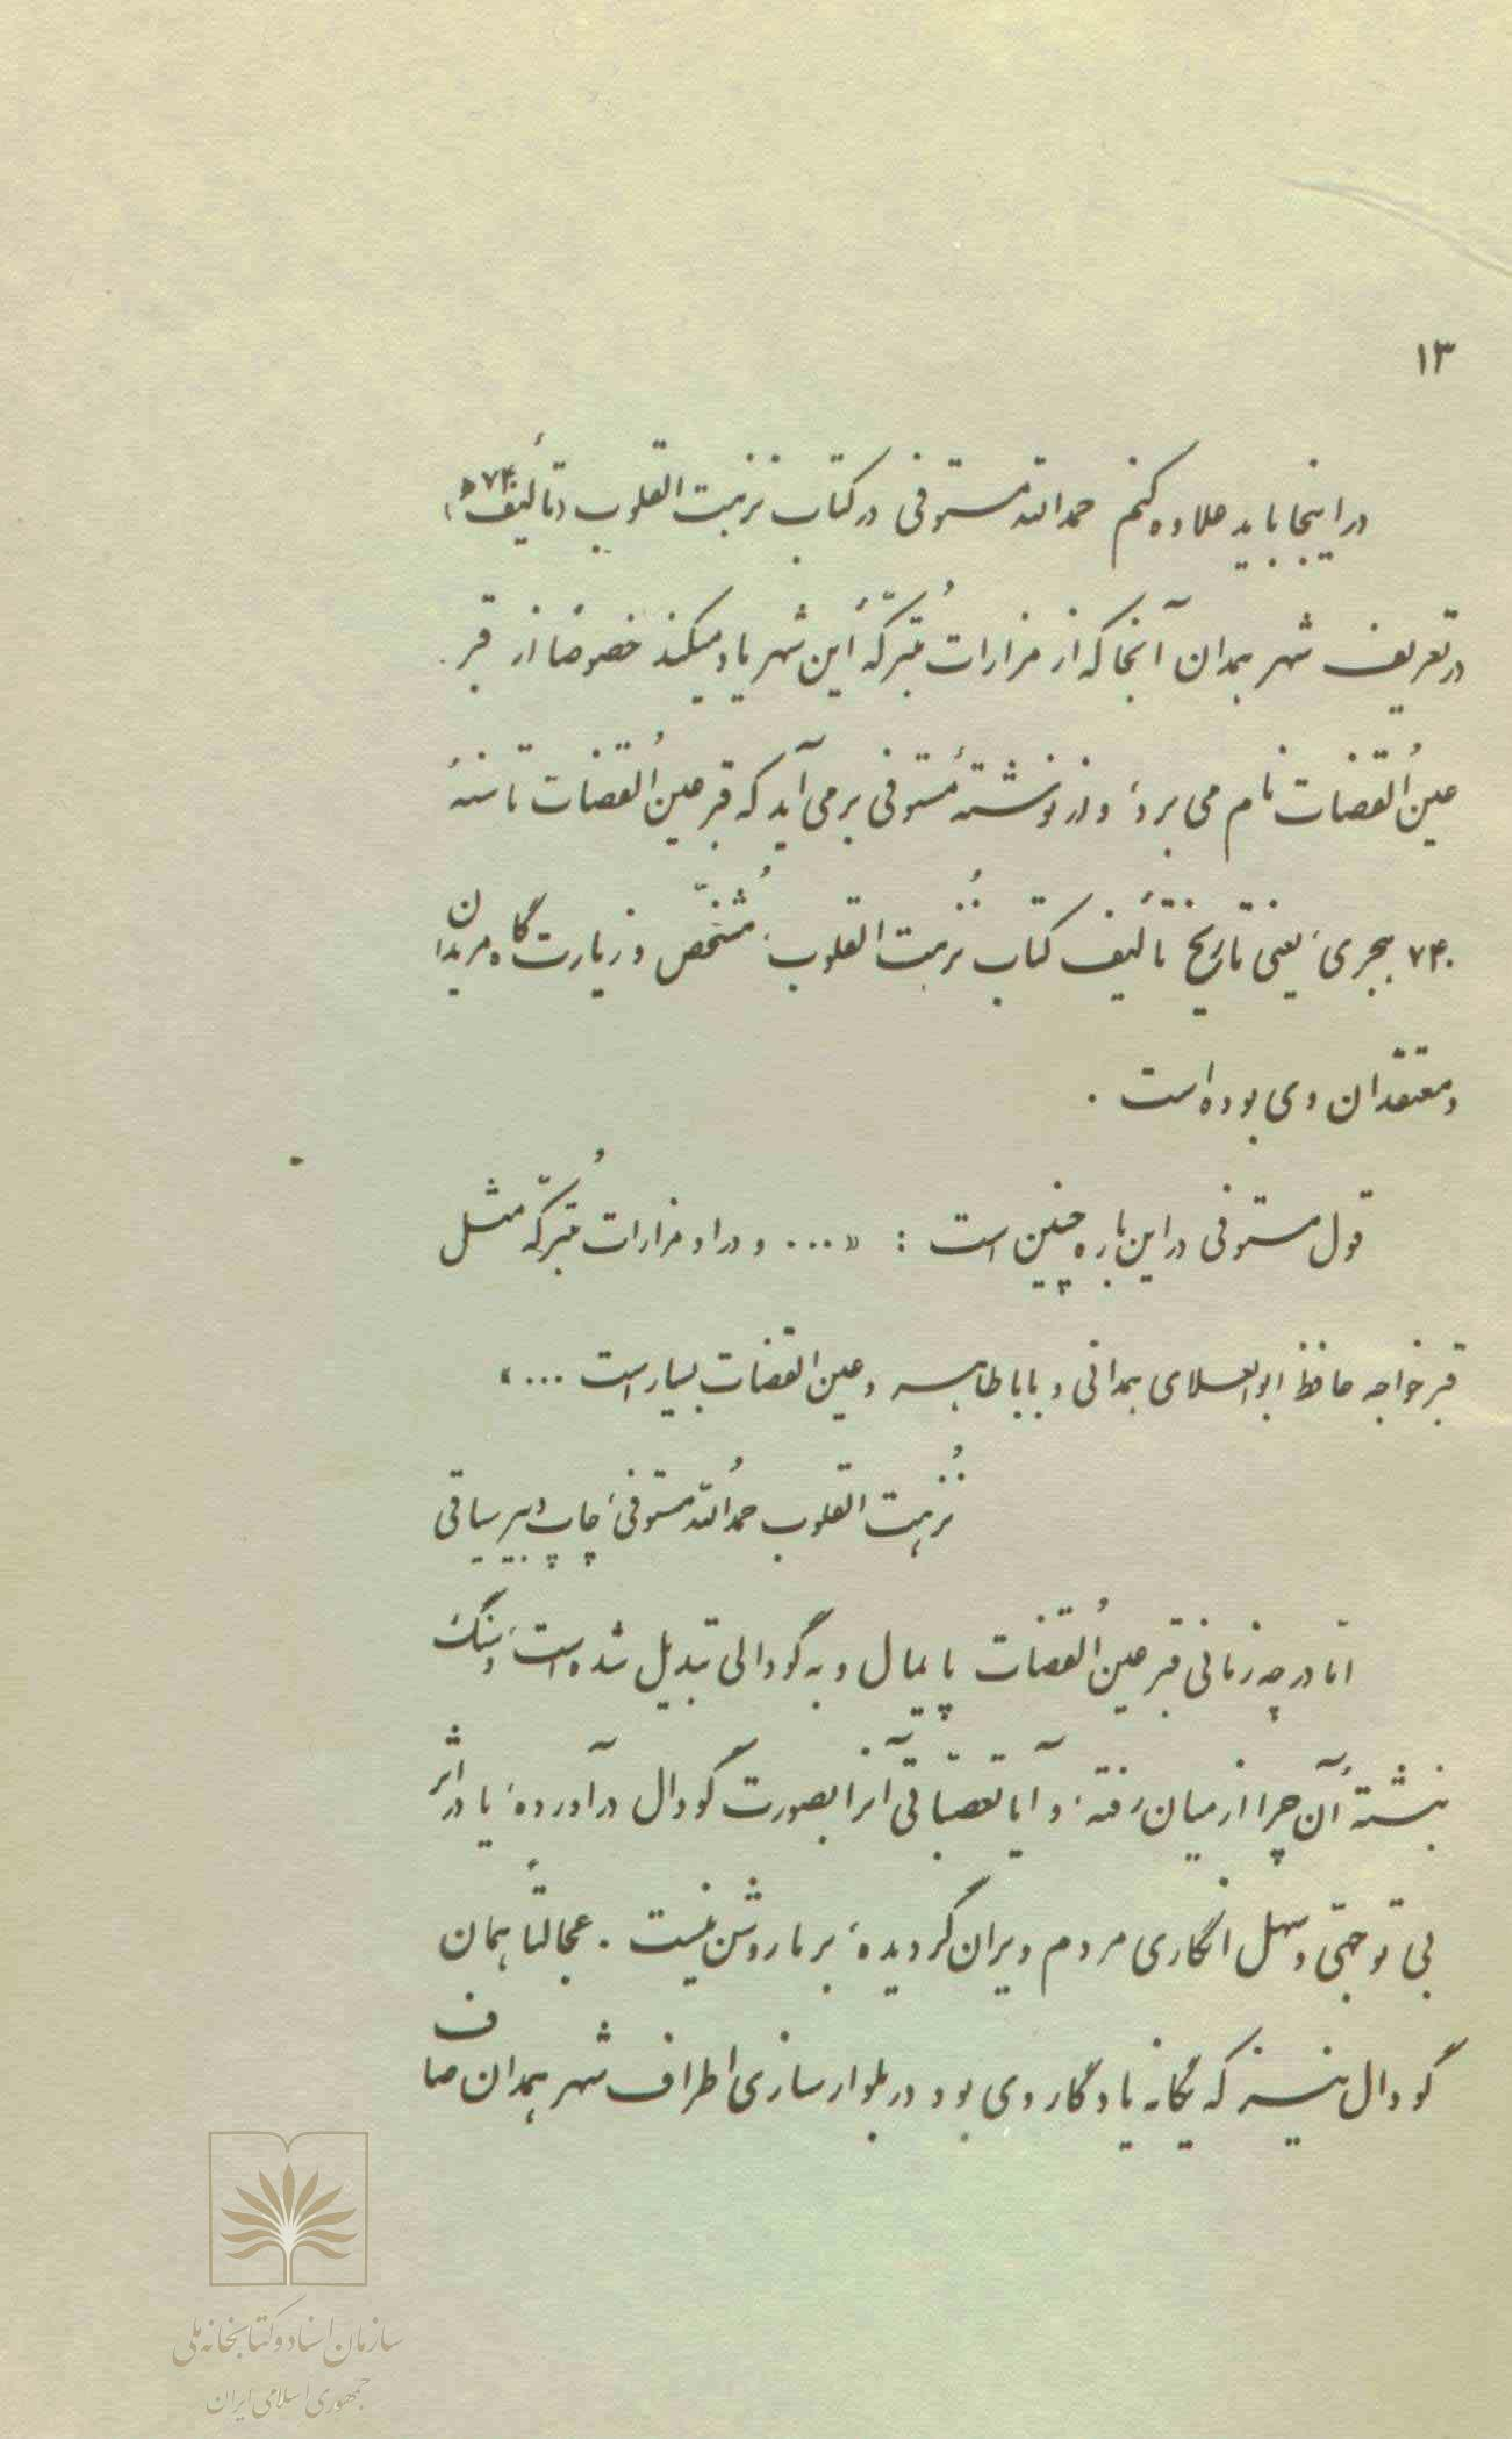 ۱۳
در اینجا باید علاوه کنم حمدالله مستوفی در کتاب نزهت القلوب (تألیف ۷۴۰ ه)
در تعریف شهر همدان آنجا که از مزارات مُتبرّکهٔ این شهر یاد میکند خصوصاً از قبر
عینُ القضات نام می برد، و از نوشتهٔ مستوفی برمی آید که قبر عینُ القضات تا سنهٔ
۷۴۰ هجری، یعنی تاریخ تألیف کتاب نُزهت القلوب، مُشخّص و زیارت گاه مریدان
و معتقدان وی بوده است .
قول مستوفی در این باره چنین است : «... و در او مزارات مُتبرّکه مثل
قبر خواجه حافظ ابوالعلای همدانی و باباطاهر و عین القضات بسیار است ...»
نُزهت القلوب حمدُالله مستوفی، چاپ دبیر سیاقی
امّا در چه زمانی قبر عینُ القضات پایمال و به گودالی تبدیل شده است، و سنگ
نبشتهٔ آن چرا از میان رفته، و آیا تعصّباتی آنرا بصورت گودال در آورده، یا در اثر
بی توجّهی و سهل انگاری مردم ویران گردیده، بر ما روشن نیست . عجالتاً همان
گودال نیز که یگانه یادگار وی بود در بلوار سازی اطراف شهر همدان صاف
سازمان اسناد و کتابخانه ملی
جمهوری اسلامی ایران